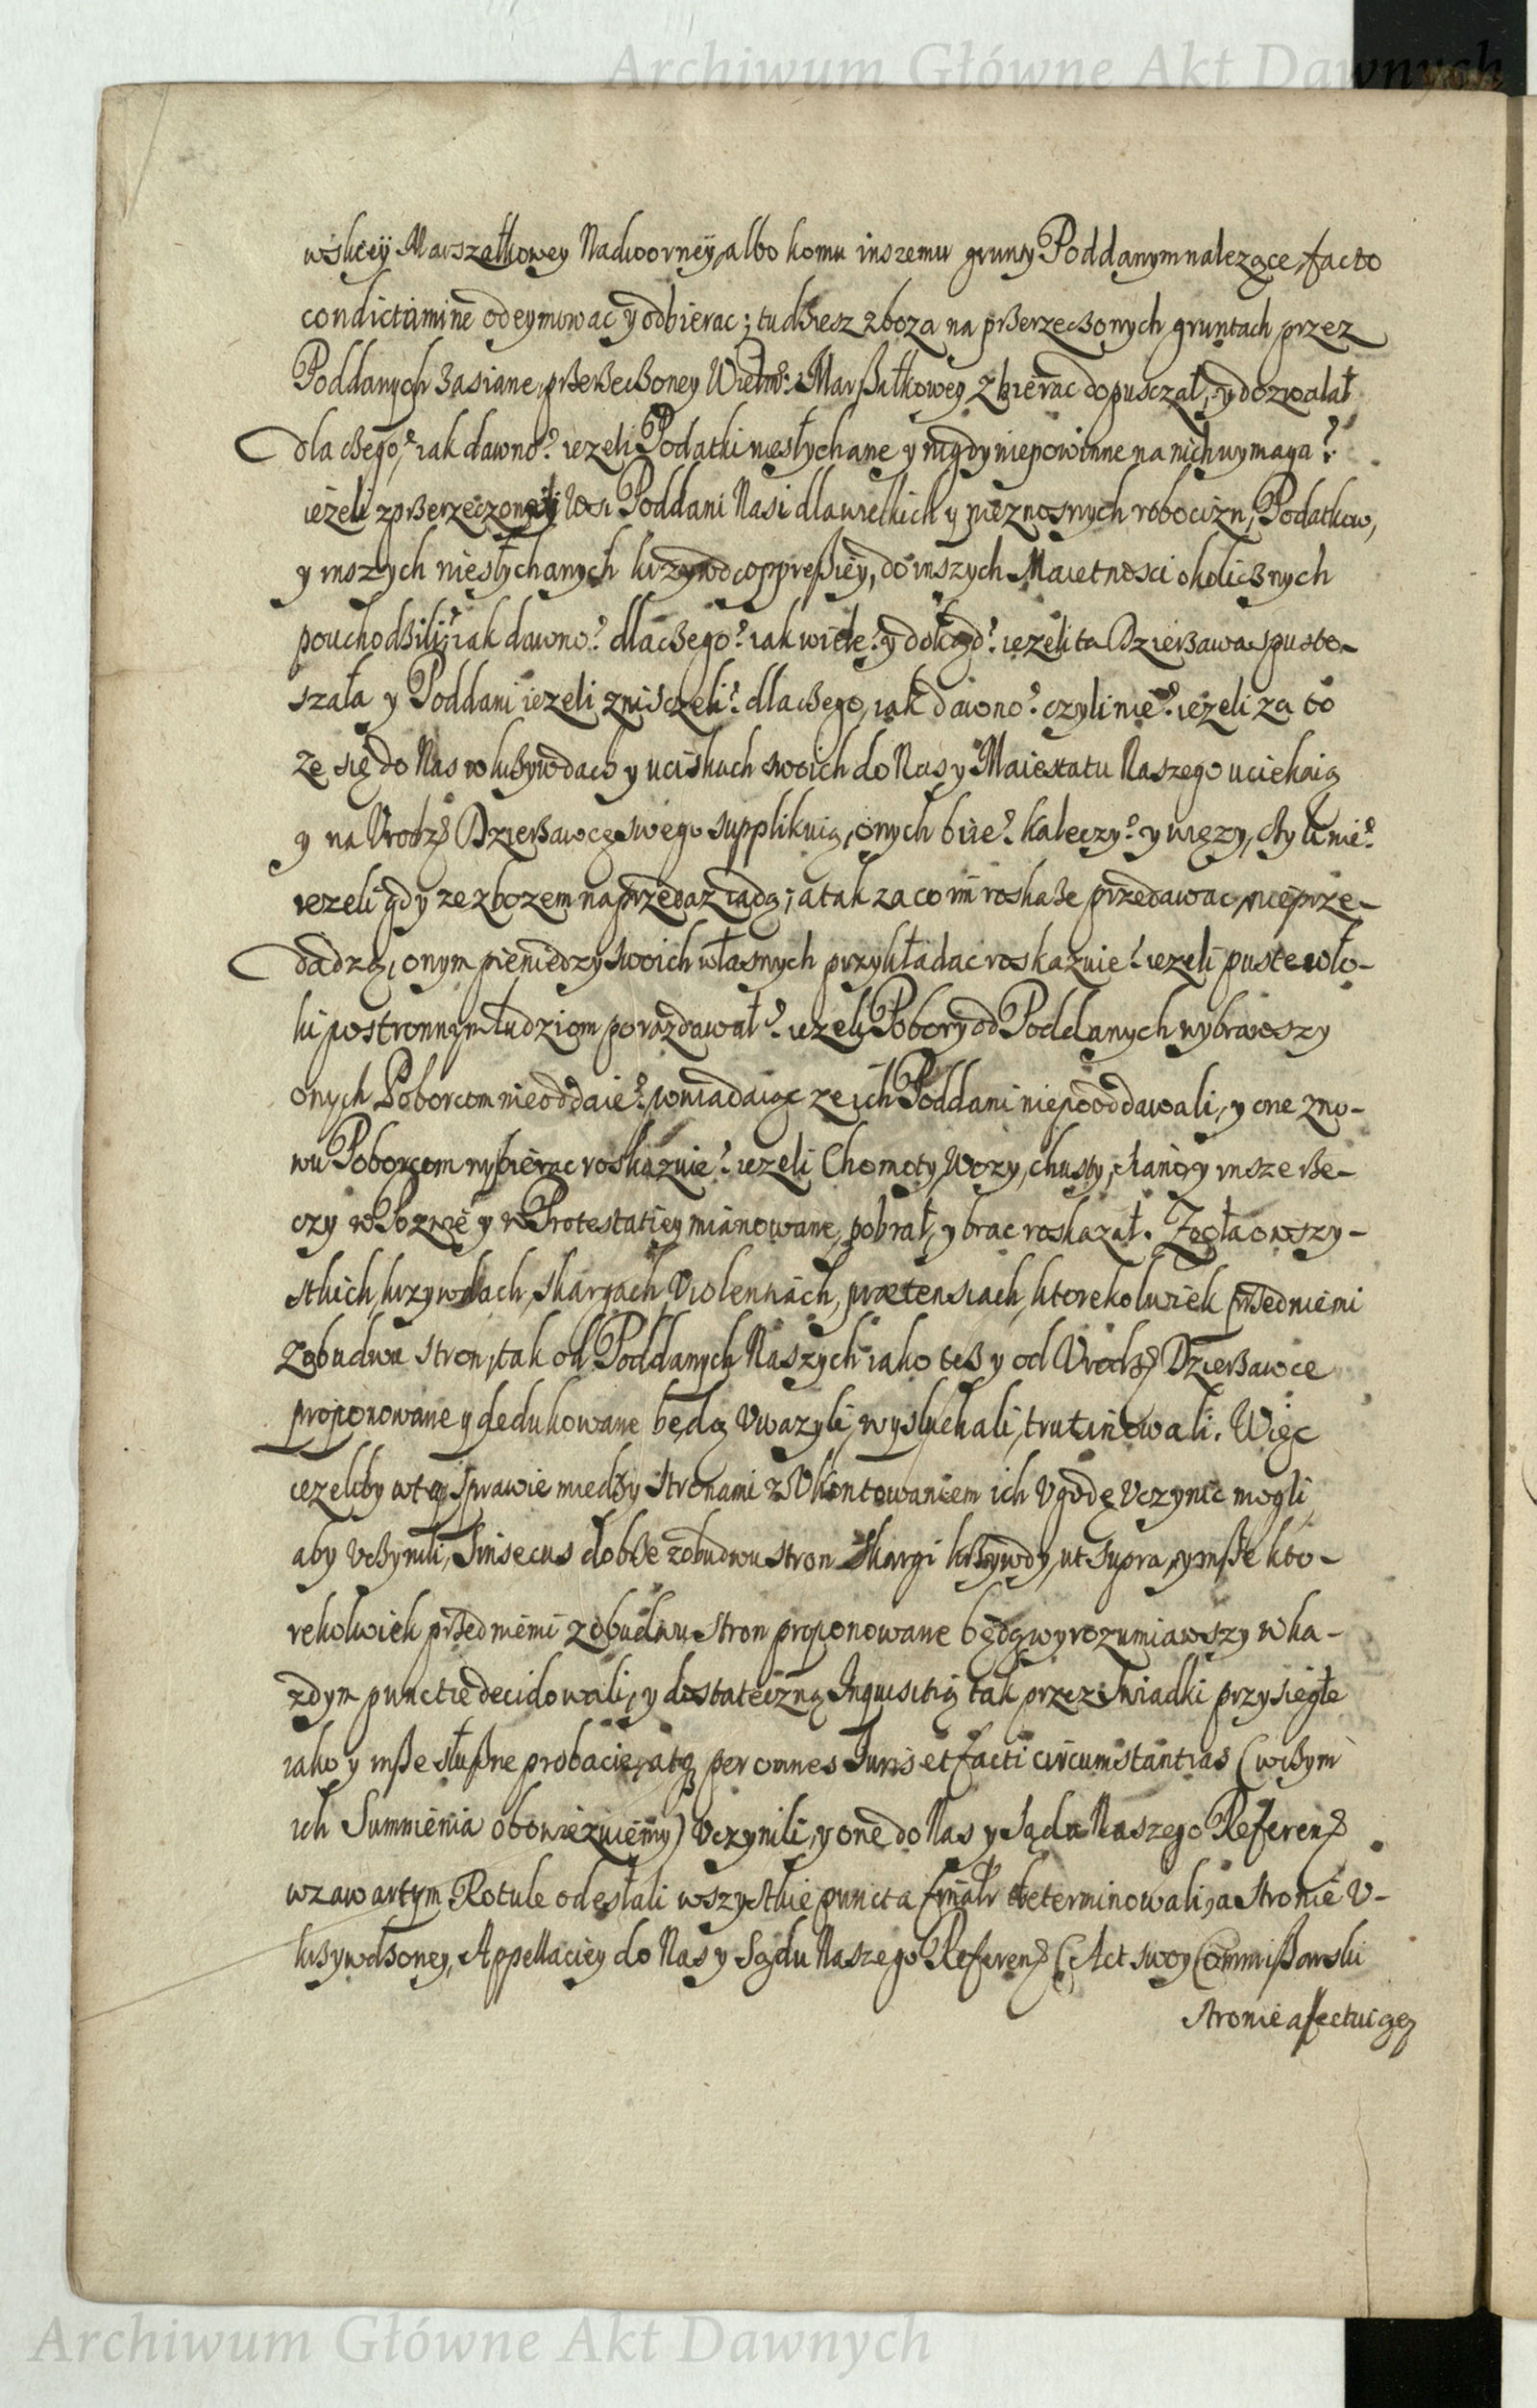 Archiwum Główne Akt Dawnych
wskiey Marszałkowey Nadworney, albo komu inszemu grunty Poddanym nalezące, facto
condictamine odeymowac y odbierac; tudziesz zboza na przerzeczonych gruntach przez
Poddanych zasiane, przerzeczoney Wielm: Marszałkowey zbierac dopusczał, y dozwalał
dla czego? iak dawno? iezeli Podatki niesłychane y nigdy niepowinne na nich wymaga?
ieżeli z przerzeczoney Wsi Poddani Nasi dla wielkich y nieznosnych robocizn, Podatkow,
y inszych niesłychanych krzywd oppressiey, do inszych Maietnosci okolicznych
pouchodzili? iak dawno? dlaczego? iak wiele? y dokąd? iezeli ta Dzierzawa spusto-
szała y Poddani iezeli zniszczeli? dlaczego, iak dawno? czyli nie? iezeli za to
ze się do Nas w krzywdach y uciskach swoich do Nas y Maiestatu Naszego uciekaią
y na Urodz Dzierzawcę swego supplikuią, onych biie? kaleczy? y więzy, czyli nie?
iezeli gdy ze zbozem na przedaz iadą; a tak za co im roskaże przedawac, nieprze-
dadzą, onym pieniedzy swoich własnych przykładac roskazuie? iezeli puste wło-
ki postronnym ludziom porozdawał? iezeli Pobory od Poddanych wybrawszy
onych Poborcom nie oddaie? powiadaiąc ze ich Poddani niepooddawali, y one zno-
wu Poborcom wybierac roskazuie? iezeli Chomoty, Wozy, chusty, siano y insze rze-
czy w Pozwie y w Protestatiey mianowane, pobrał, y brac roskazał. Zgoła o wszy-
stkich krzywdach, skargach, Violentiach, praetensiach, ktorekolwiek przed niemi
z obudwu stron, tak od Poddanych Naszych iako też y od Urodz Dzierzawce
proponowane y dedukowane będą Uwazyli, wysłuchali, trutinowali. Więc
iezeliby w tey sprawie miedzy stronami z Ukontowaniem ich Ugodę Uczynic mogli,
aby Uczynili, Sinsecus dobrze z obudwu stron skargi krzywdy, ut supra, y insze kto-
rekolwiek przed niemi z obudwu stron proponowane będą wyrozumiawszy w ka-
zdym punctie decidowali, y dostateczną Inquisitią tak przez swiadki przysiegłe
iako y insze słuszne probacie, atq per omnes Juris et facti circumstantias (w czym
ich Summienia obowiezuiemy) Uczynili, y one do Nas y Sądu Naszego Referen
w zawartym Rotule odesłali wszystkie puncta finalr determinowali, a stronie U-
krzywdzoney, Appellaciey do Nas y Sądu Naszego Referen (Act swoy Commissarski
stronie afectuiącey
Archiwum Główne Akt Dawnych